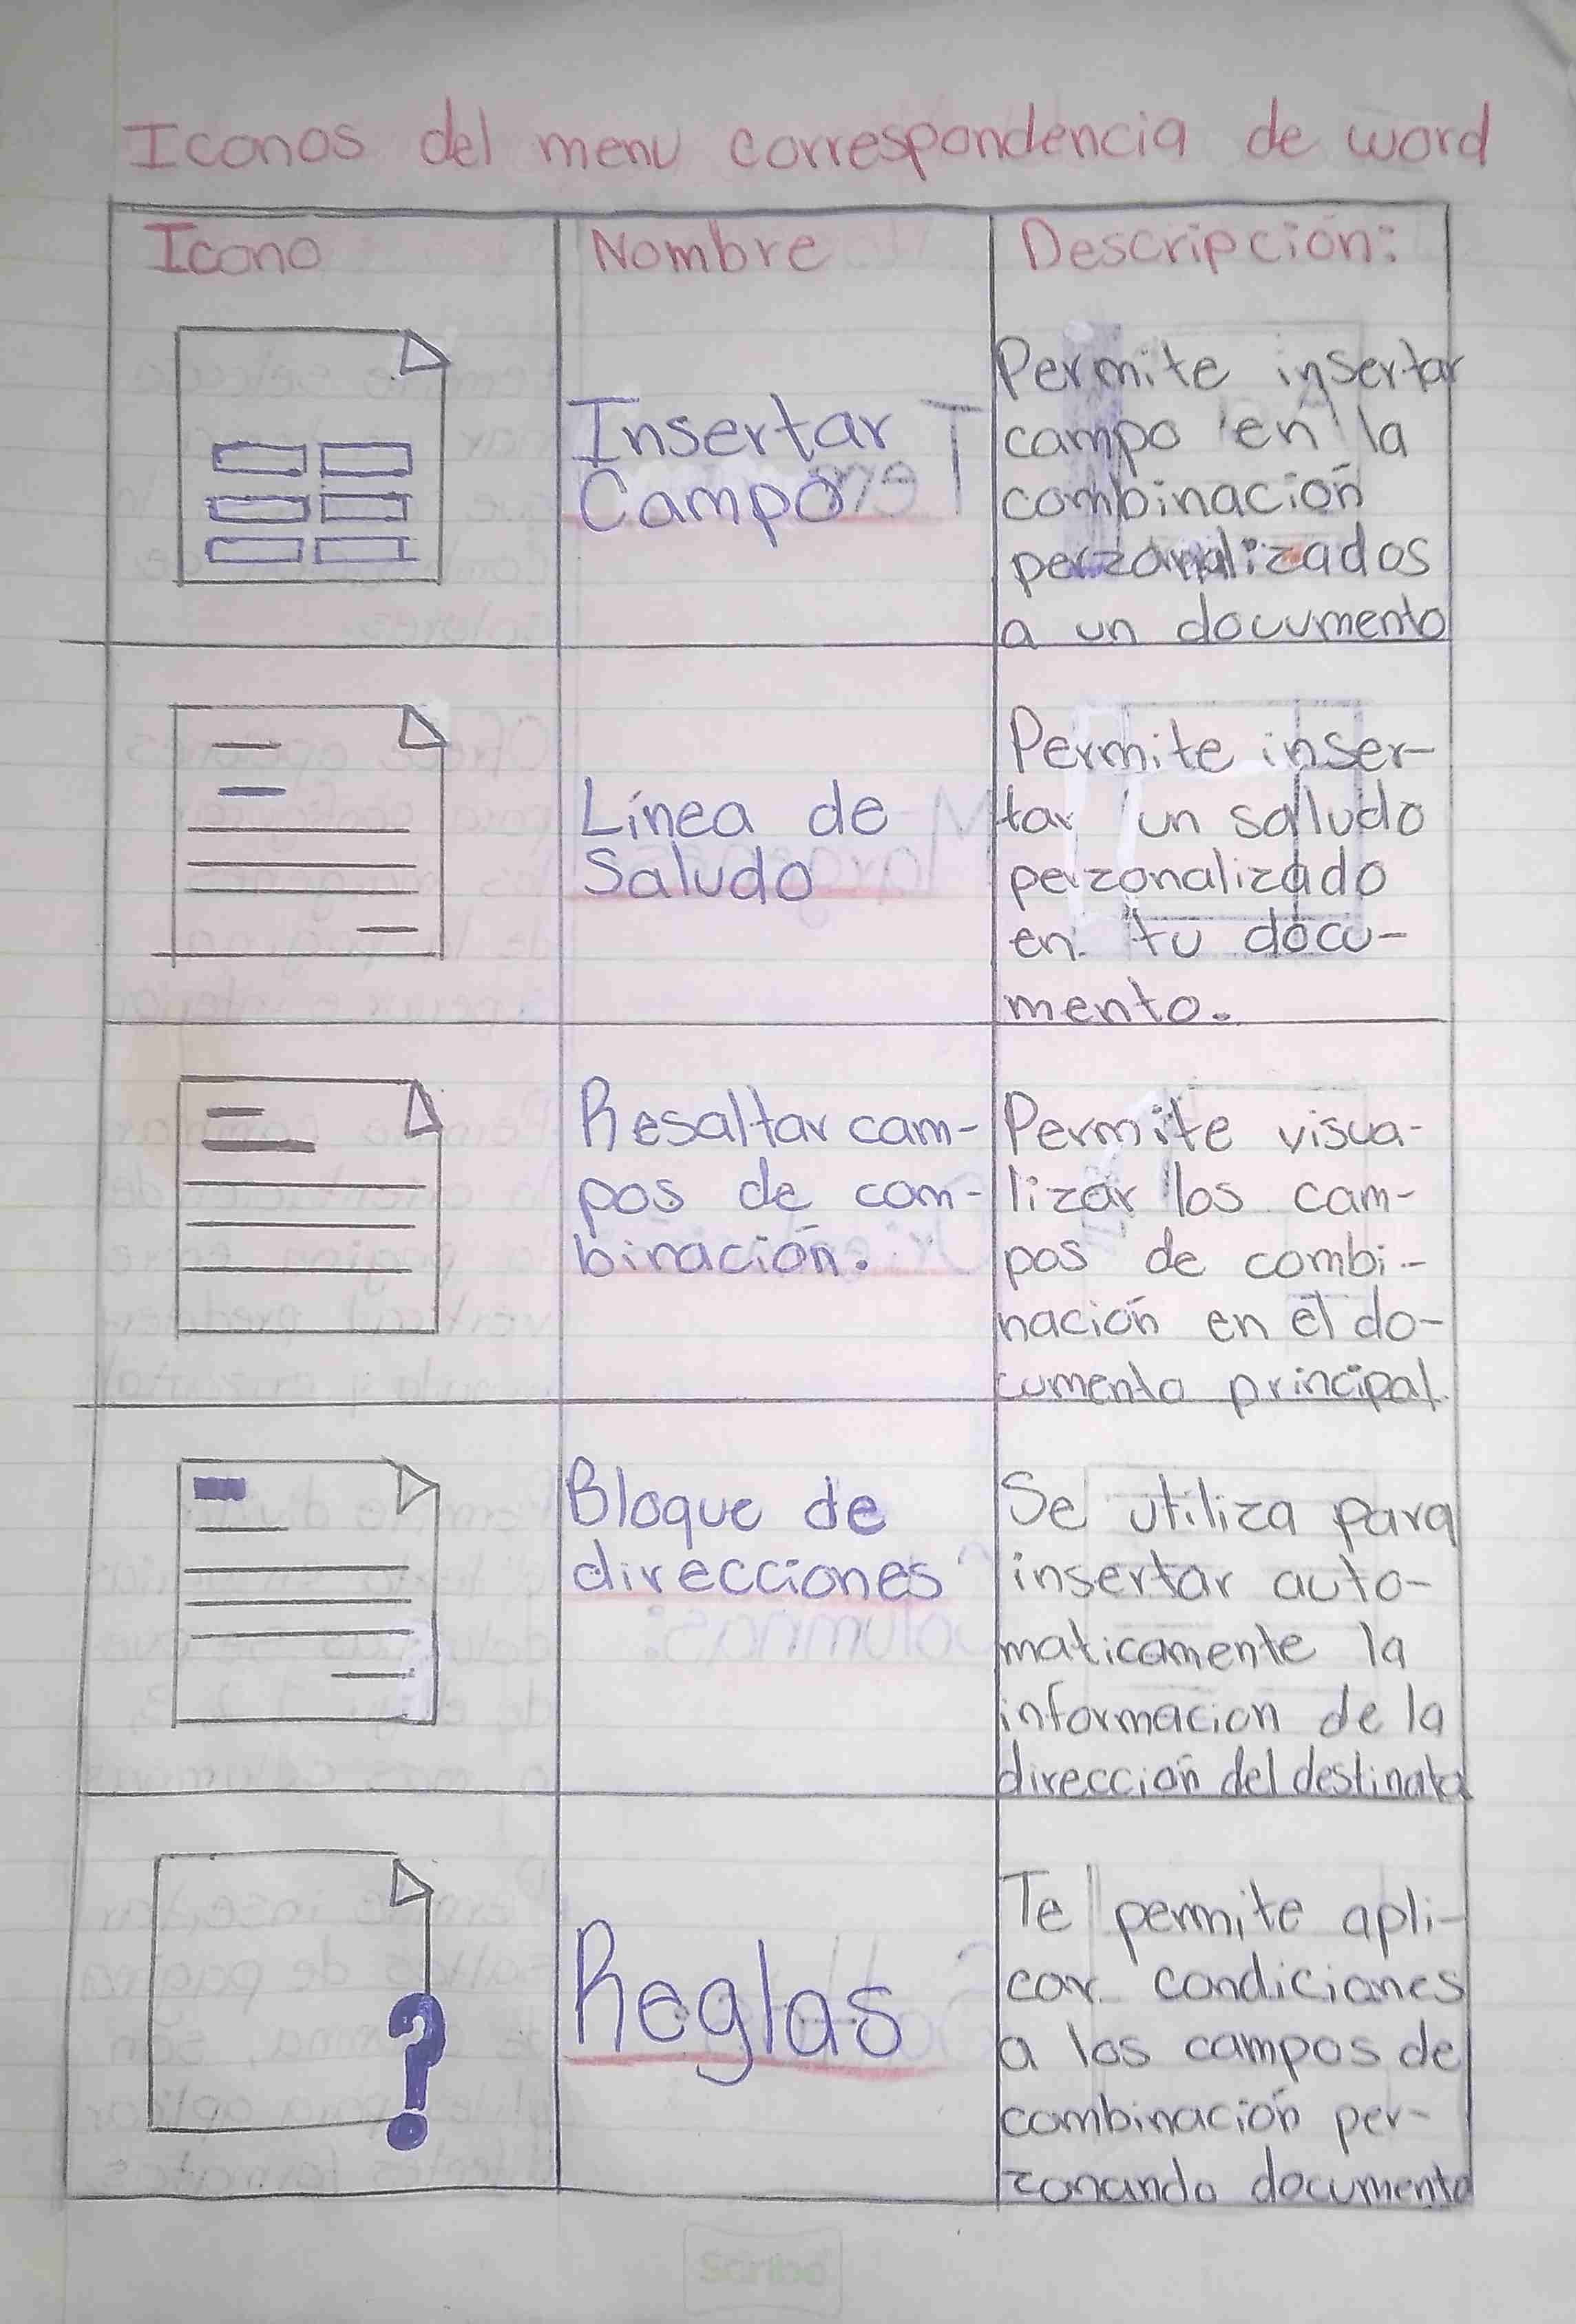 Iconos del menu correspondencia de word
Icono
Nombre
Descripción:
Insertar
Campo
Permite insertar
campo en la
combinación
perzonalizados
a un documento
Línea de
Saludo
Permite inser-
tar un saludo
perzonalizado
en tu docu-
mento.
Resaltar cam-
pos de com-
binación.
Permite visua-
lizar los cam-
pos de combi-
nación en el do-
cumento principal.
Bloque de
direcciones
Se utiliza para
insertar auto-
maticamente la
informacion de la
dirección del destinata
Reglas
Te permite apli-
car condiciones
a los campos de
combinación per-
zonando documento
Scribe